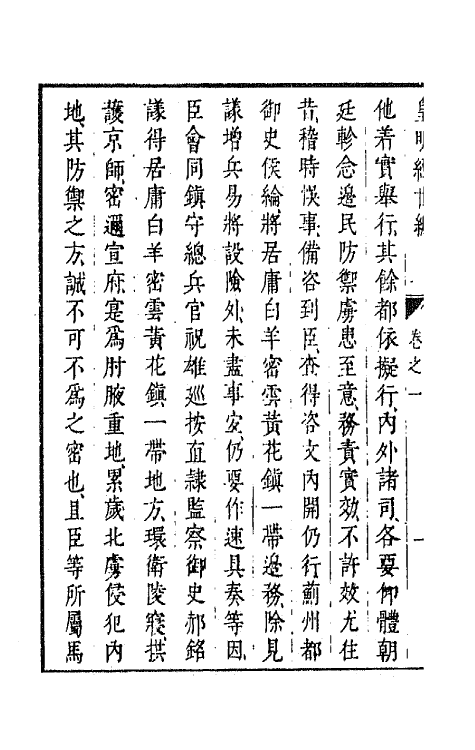 皇明經世編 卷之一 一
他若實舉行其餘都依擬行内外諸司各要仰體朝
廷軫念邊民防禦虜患至意務責實效不許效尤往
昔稽時悞事備咨到臣查得咨文内開仍行薊州都
御史侯綸將居庸白羊密雲黄花鎮一帶邊務除見
議增兵易將設險外未盡事宜仍要作速具奏等因
臣會同鎮守總兵官祝雄廵按直隸監察御史郝銘
議得居庸白羊密雲黄花鎮一帶地方環衛陵寢拱
護京師密邇宣府寔爲肘腋重地累歲北虜侵犯内
地其防禦之方誠不可不爲之密也且臣等所屬馬